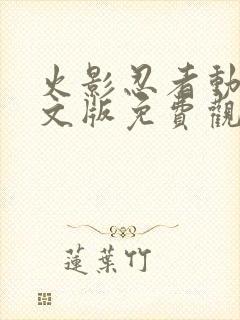 火影忍者動
文版免費觀
蓮葉竹